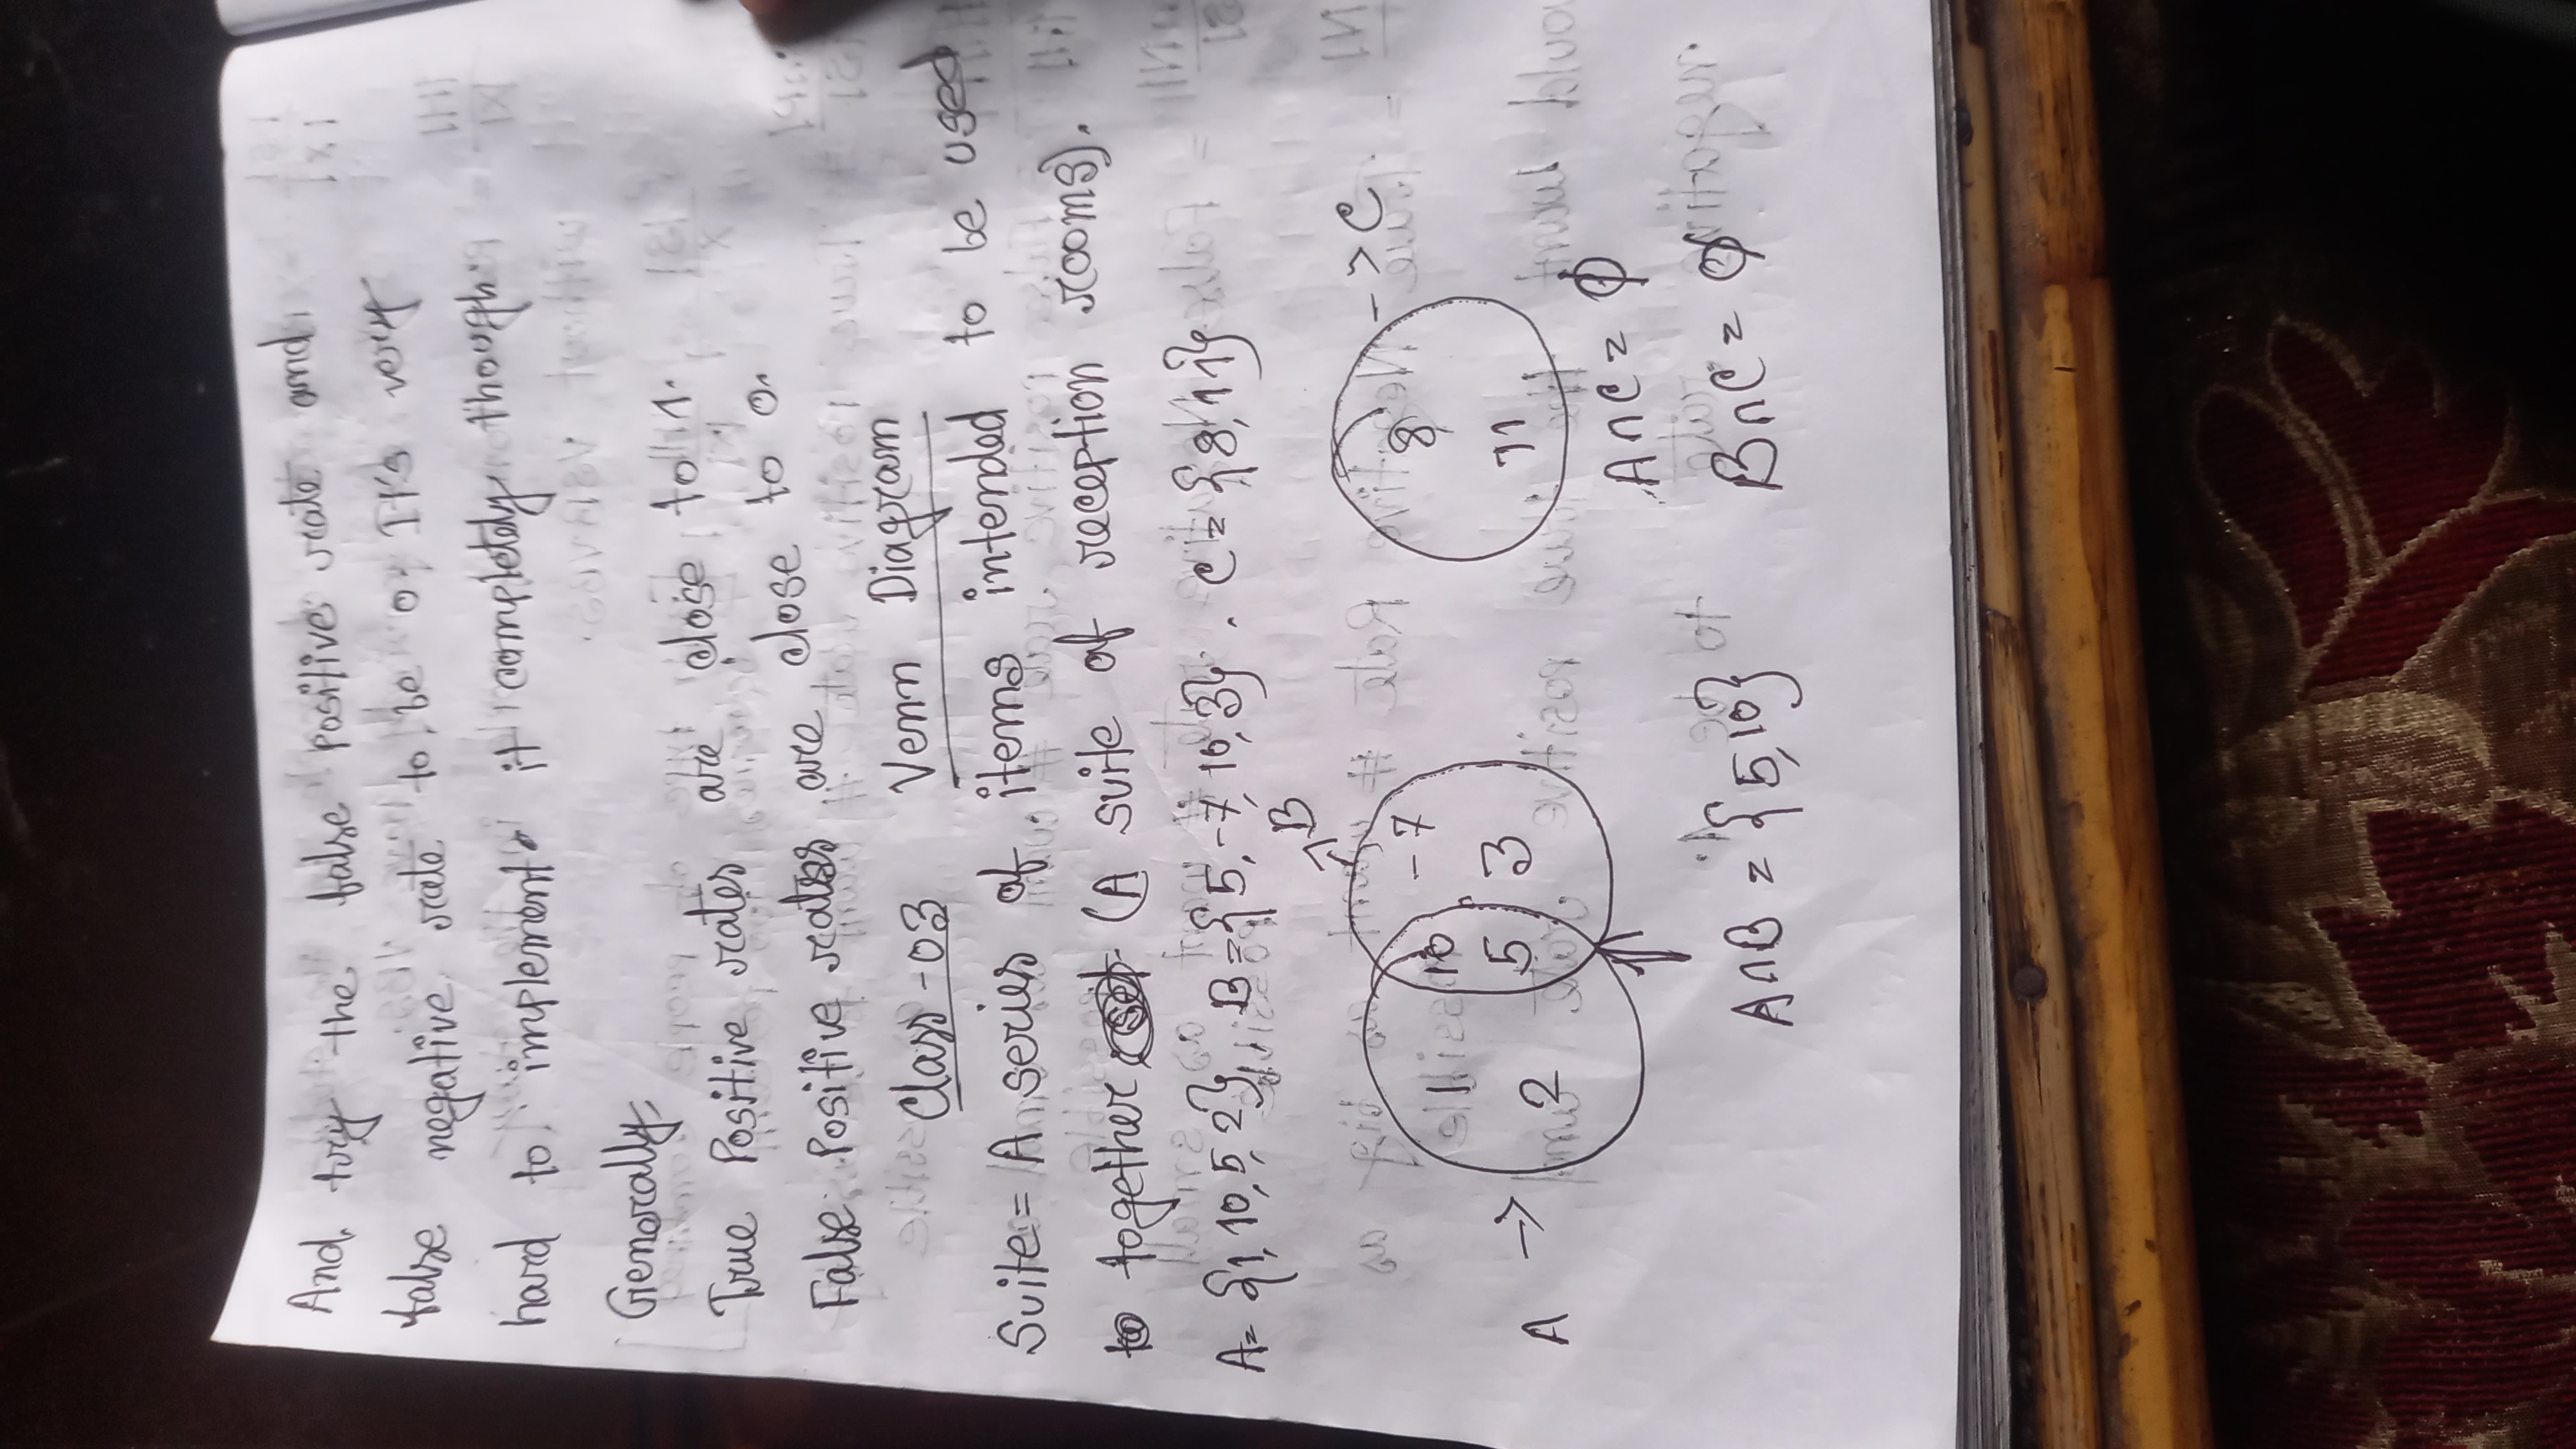 And try the false positive rate and
false negative rate to be 0. It's very
hard to implement it completely though.
Generally,
True Positive rates are close to 1.
False Positive rates are close to 0.
Class-03 Venn Diagram
Suite = A series of items intended to be used
to together (A suite of reception rooms).
A = {1, 10, 5, 2}, B = {5, -7, 10, 3}, C = {8, 11}
B
C
1 10 -7
8
A → 2 5 3
11
A∩C = ϕ
A∩B = {5, 10}
B∩C = ϕ